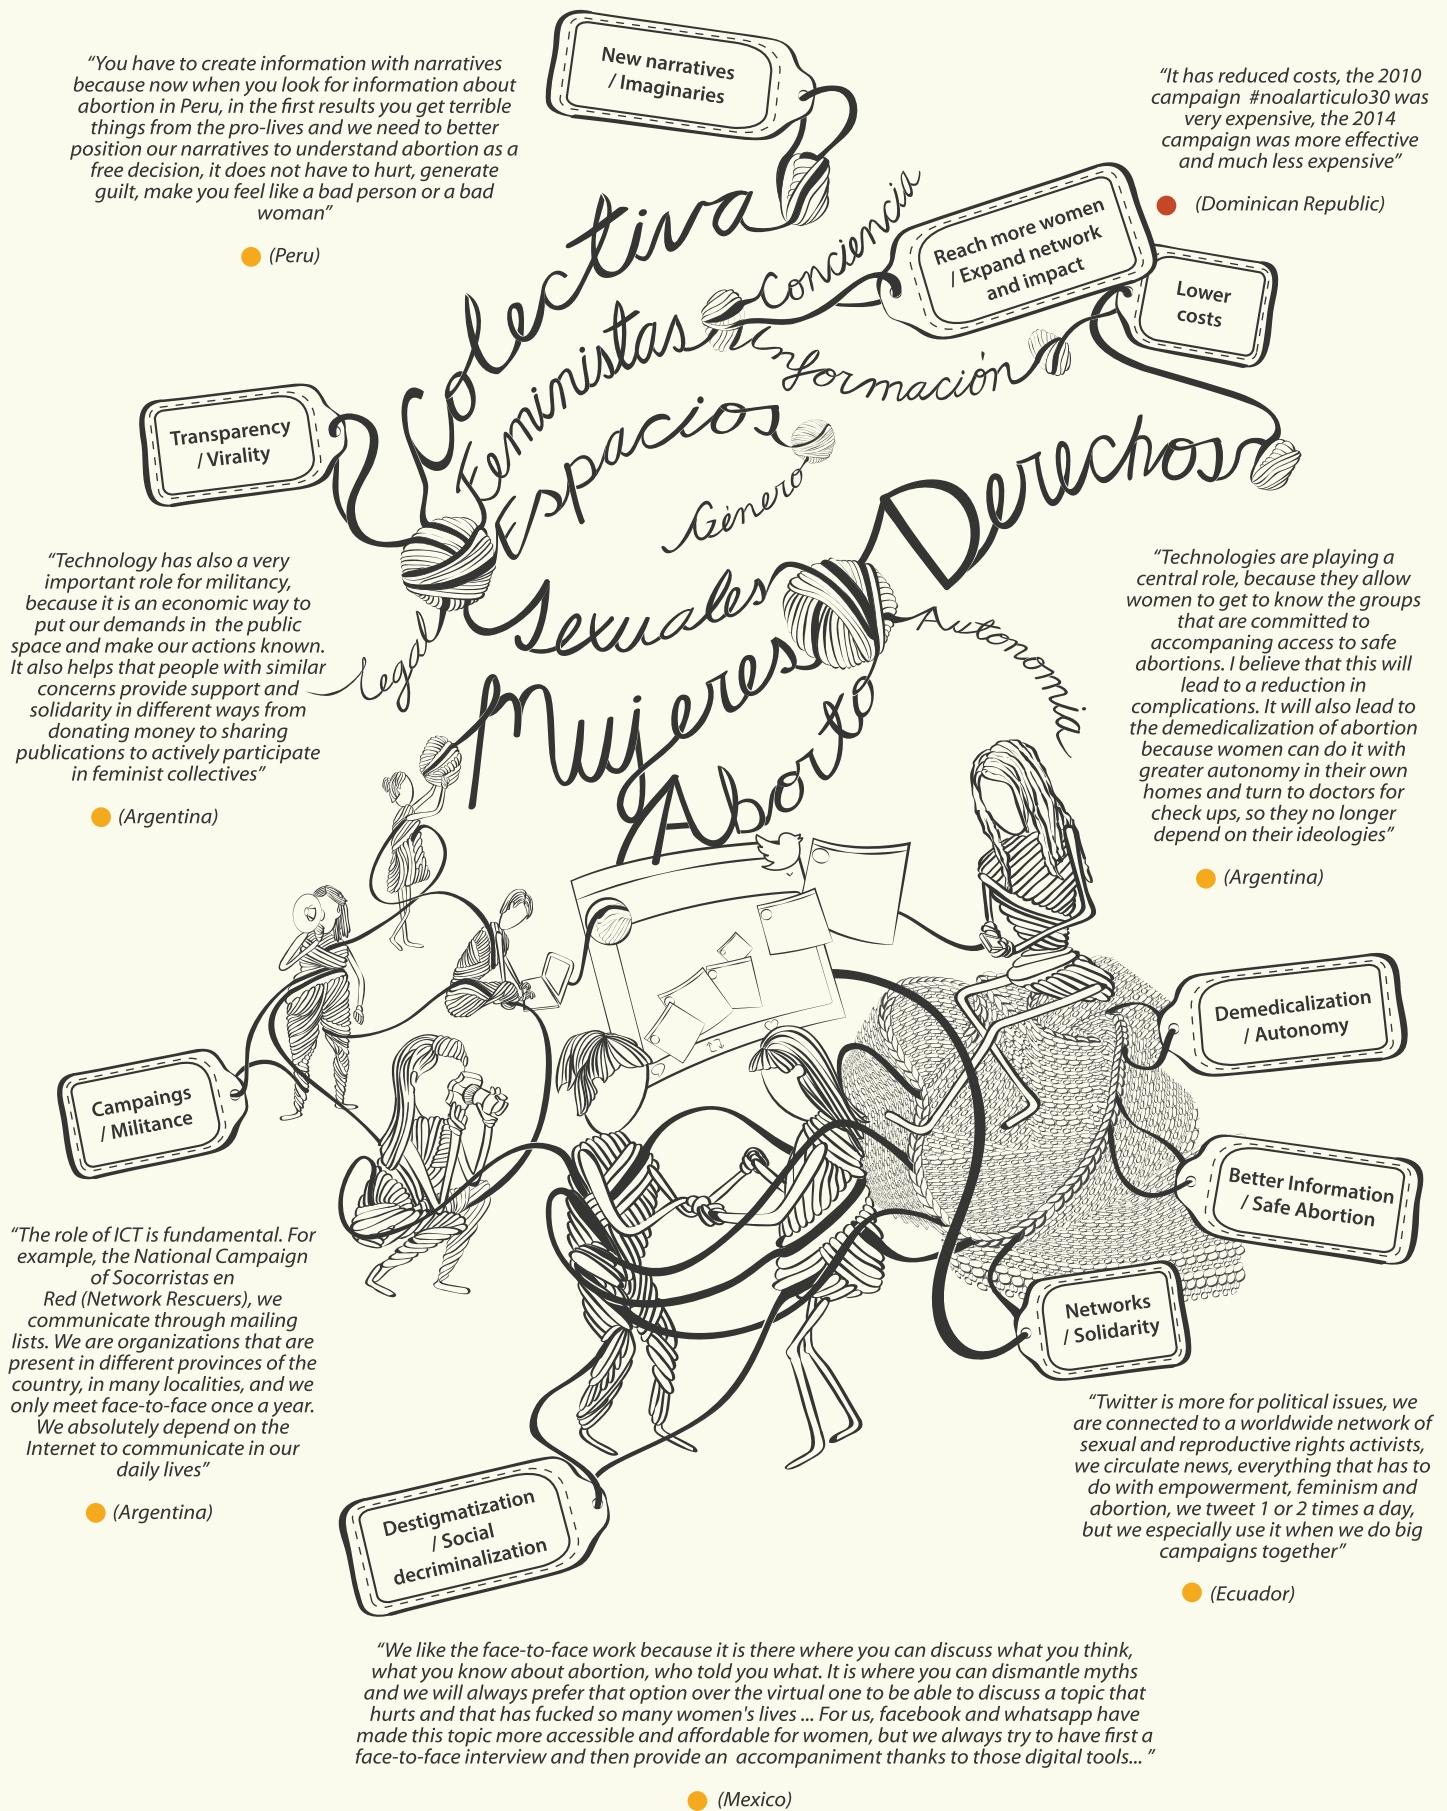 “You have to create information with narratives
because now when you look for information about
abortion in Peru, in the first results you get terrible
things from the pro-lives and we need to better
position our narratives to understand abortion as a
free decision, it does not have to hurt, generate
guilt, make you feel like a bad person or a bad
woman”
(Peru)
New narratives
/ Imaginaries
“It has reduced costs, the 2010
campaign #noalarticulo30 was
very expensive, the 2014
campaign was more effective
and much less expensive”
(Dominican Republic)
Colectiva
Conciencia
Reach more women
/ Expand network
and impact
Lower
costs
Feministas
Información
Transparency
/ Virality
Espacios
Género
Derechos
“Technology has also a very
important role for militancy,
because it is an economic way to
put our demands in the public
space and make our actions known.
It also helps that people with similar
concerns provide support and
solidarity in different ways from
donating money to sharing
publications to actively participate
in feminist collectives”
(Argentina)
Legal
Sexuales
Mujeres
Autonomía
Aborto
“Technologies are playing a
central role, because they allow
women to get to know the groups
that are committed to
accompaning access to safe
abortions. I believe that this will
lead to a reduction in
complications. It will also lead to
the demedicalization of abortion
because women can do it with
greater autonomy in their own
homes and turn to doctors for
check ups, so they no longer
depend on their ideologies”
(Argentina)
Demedicalization
/ Autonomy
Campaings
/ Militance
Better Information
/ Safe Abortion
Networks
/ Solidarity
“The role of ICT is fundamental. For
example, the National Campaign
of Socorristas en
Red (Network Rescuers), we
communicate through mailing
lists. We are organizations that are
present in different provinces of the
country, in many localities, and we
only meet face-to-face once a year.
We absolutely depend on the
Internet to communicate in our
daily lives”
(Argentina)
“Twitter is more for political issues, we
are connected to a worldwide network of
sexual and reproductive rights activists,
we circulate news, everything that has to
do with empowerment, feminism and
abortion, we tweet 1 or 2 times a day,
but we especially use it when we do big
campaigns together”
(Ecuador)
Destigmatization
/ Social
decriminalization
“We like the face-to-face work because it is there where you can discuss what you think,
what you know about abortion, who told you what. It is where you can dismantle myths
and we will always prefer that option over the virtual one to be able to discuss a topic that
hurts and that has fucked so many women's lives ... For us, facebook and whatsapp have
made this topic more accessible and affordable for women, but we always try to have first a
face-to-face interview and then provide an accompaniment thanks to those digital tools... ”
(Mexico)